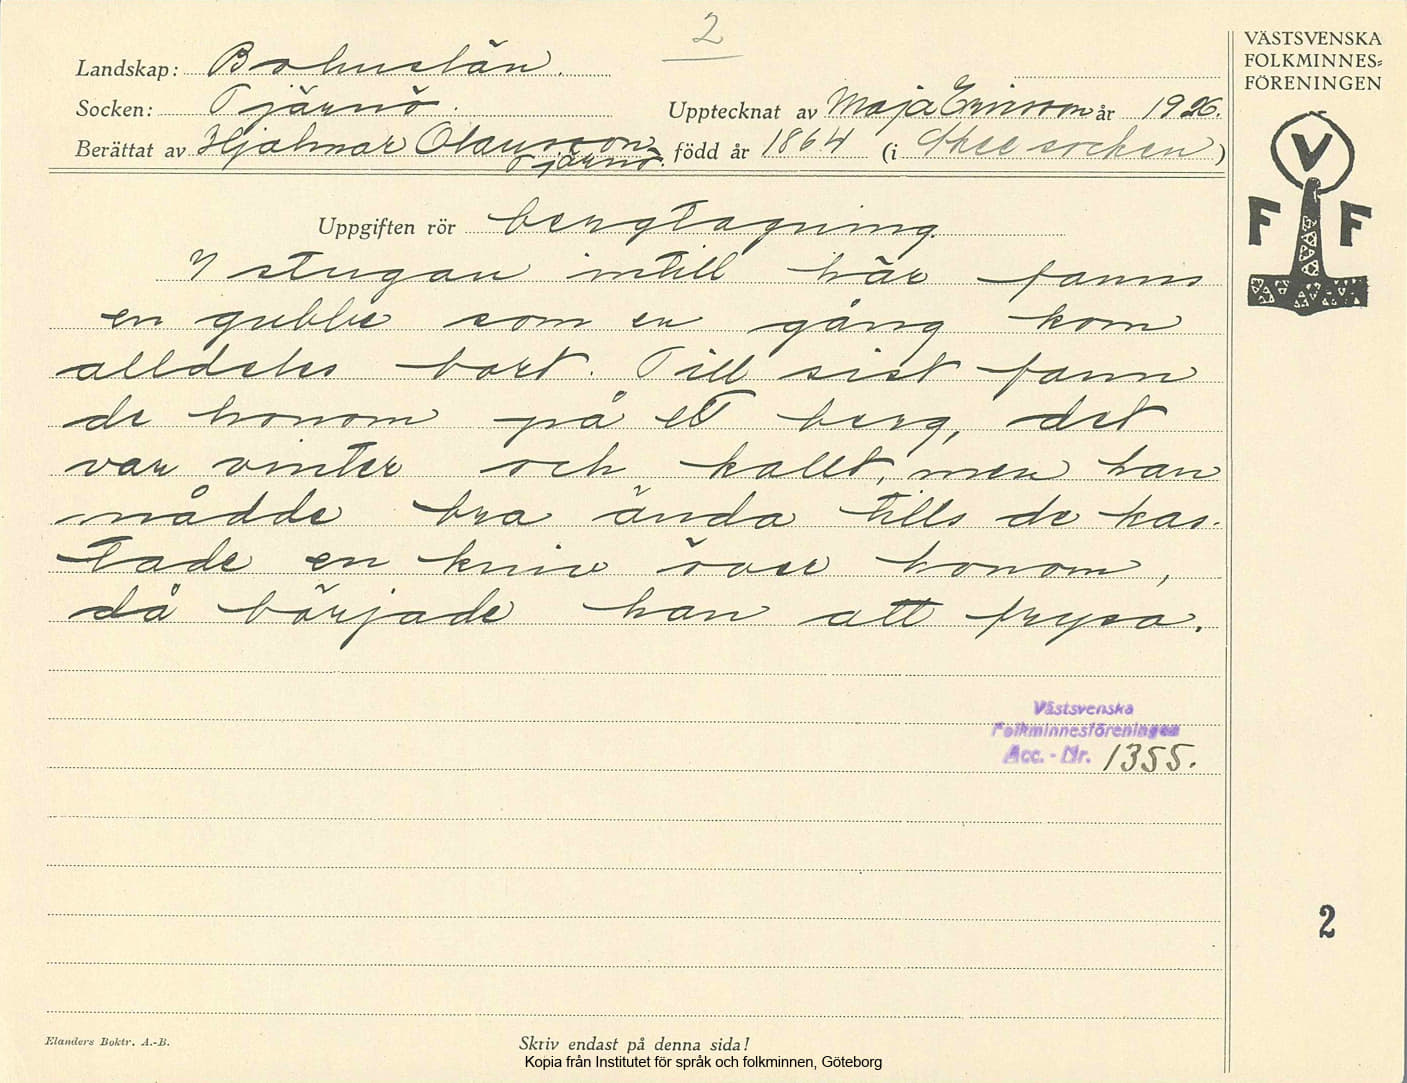 2
VÄSTSVENSKA
FOLKMINNES=
FÖRENINGEN
Landskap: Bohuslän.
Socken: Tjärnö.
Upptecknat av Maja Ericsson år 1926.
Berättat av Hjalmar Olausson
Tjärnö. född år 1864 (i Skee socken)
V
F F
Uppgiften rör bergtagning.
I stugan intill här fanns
en gubbe som en gång kom
alldeles bort. Till sist fann
de honom på ett berg, det
var vinter och kallt, men han
mådde bra ända tills de kas-
tade en kniv över honom,
då började han att frysa.
Västsvenska
Folkminnesföreningen
Acc. - Nr. 1355.
2
Elanders Boktr. A.-B.
Skriv endast på denna sida!
Kopia från Institutet för språk och folkminnen, Göteborg